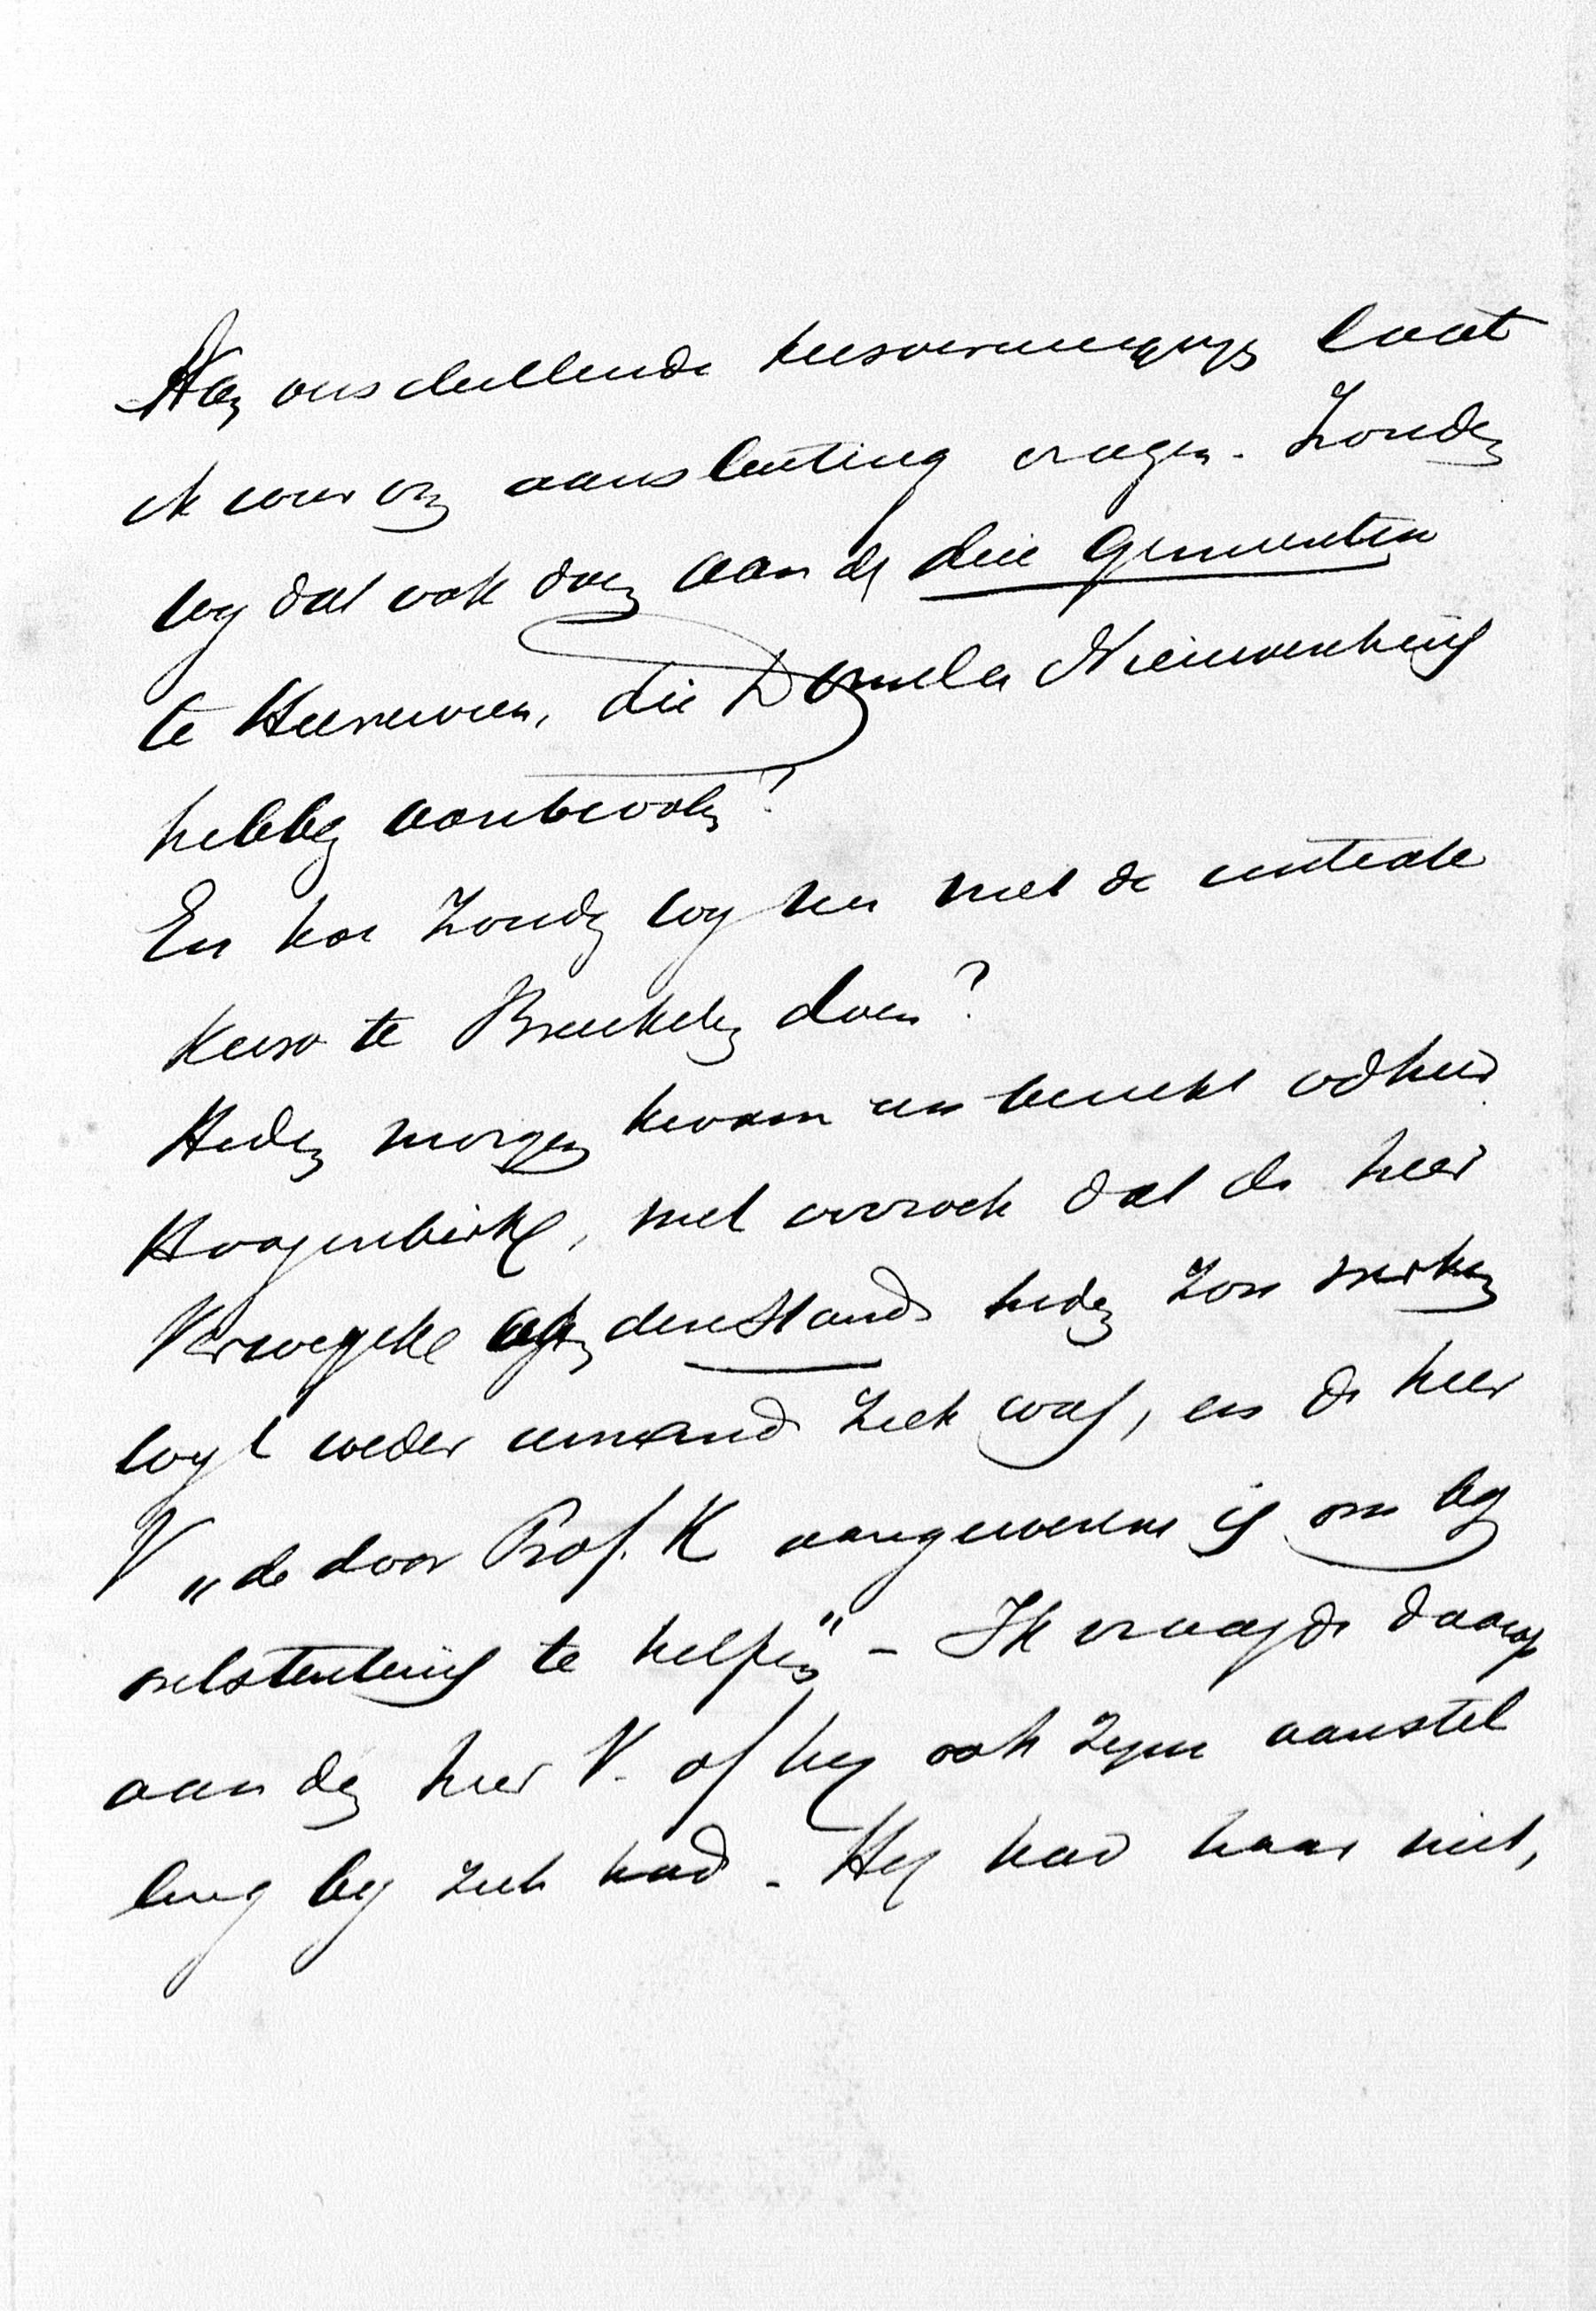 Aan verschillende kiesvereenigingen laat
ik weer om aansluiting vragen. Zouden
wy dat ook doen aan de drie gemeenten
te Heereveen, die Domela Nieuwenhuis
hebben aanbevolen?
En hoe zouden wy nu met de centrale
kiesv te Breukelen doen?
Heden morgen kwam een bericht vd heer
Hoogenbirk, met verzoek dat de heer
Verweyde dienstands heden zou werken
wyl weder iemand ziek was, en de heer
V „de door Prof. K aangewezene is om by
ontstentenis te helpen" – Ik vraagde daarop
aan den heer V. of hy ook zyne aanstel
ling by zich had. – Hy had haar niet,